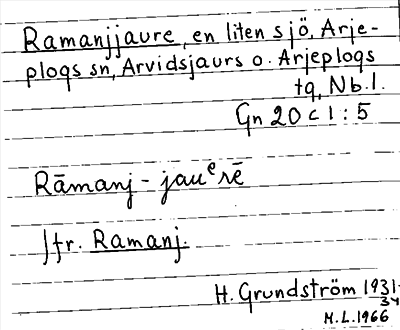 Ramanjjaure, en liten sjö, Arje-
plogs sn, Arvidsjaurs o. Arjeplogs
tg, Nb.l.
Gn 20 c 1 : 5
Rāmanj - jauᵉrē
Jfr. Ramanj.
H. Grundström 1931-
34
M.L.1966